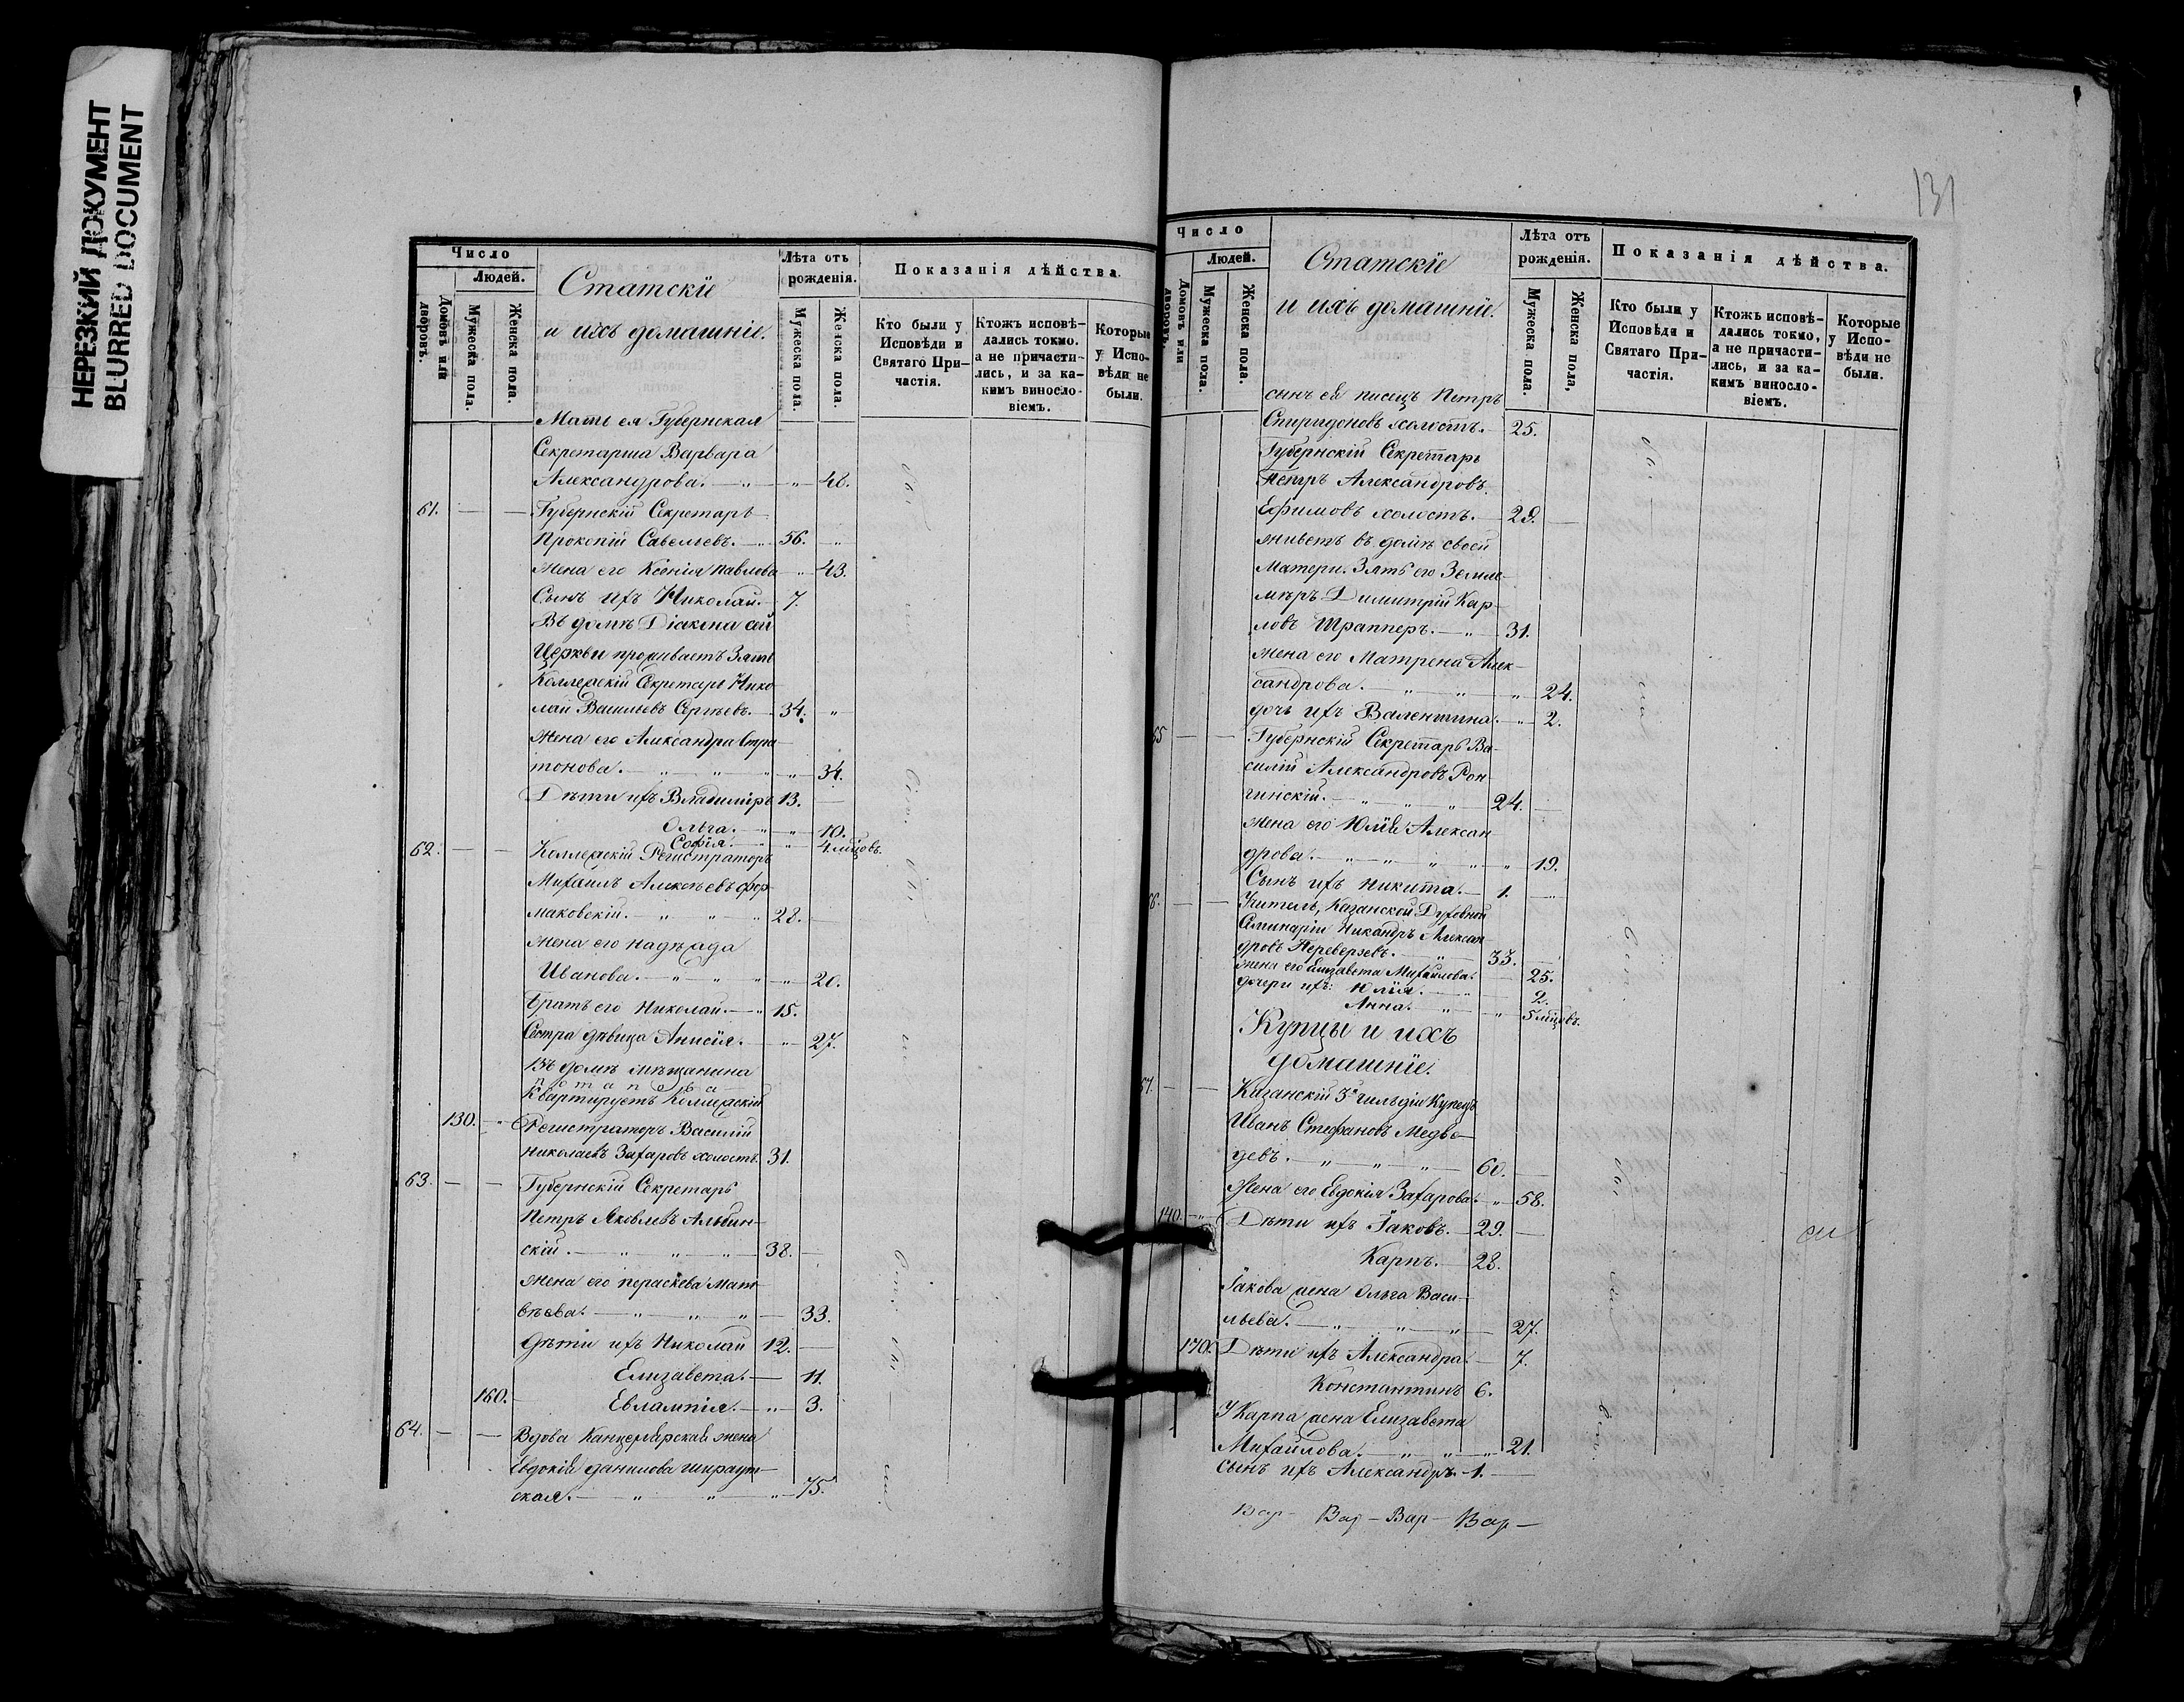 НЕРЕЗКИЙ ДОКУМЕНТ
BLURRED DOCUMENT
Число
Людей.
Домовъ или дворовъ.
Мужеска пола.
Женска пола.
Статскіе
и ихъ домашніе.
Лѣта отъ рожденія.
Мужеска пола.
Женска пола.
Показанія дѣйства.
Кто были у Исповѣди и Святаго Причастія.
Ктожъ исповѣдались токмо. а не причастились, и за какимъ винословіемъ.
Которые у Исповѣди не были.
Мать ея Губернская
Секретарша Варвара
Александрова. 48.
61. Губернскій Секретарь
Прокопій Савельевъ. 56.
Жена его Ксенія Павлова 43.
Сынъ ихъ Николай. 7.
Въ домѣ Діакона сей
Церкви проживаетъ Зять
Коллежскій Секретарь Нико
лай Васильевъ Сергѣевъ. 34.
Жена его Александра Стра
тонова. 34.
Дѣти ихъ Владиміръ 13.
Ольга. 10.
Софія. 4 мѣсцовъ.
62. Коллежскій Регистраторъ
Михаилъ Алексѣевъ Фор
маковскій. 28.
Жена его Надѣжда
Иванова. 20.
Братъ его Николай. 15.
Сестра дѣвица Анисія. 27.
Въ домѣ мѣщанина
Потапова
Квартируетъ Коллежскій
130. Регистраторъ Василій
Николаевъ Захаровъ холостъ. 31.
63. Губернскій Секретарь
Петръ Яковлевъ Альбин
скій. 38.
Жена его Параскева Мат
вѣева. 33.
Дѣти ихъ Николай 12.
Елизавета. 11.
160. Евлампія. 3.
64. Вдова Канцелярская жена
Евдокія Данилова
ская. 75.
131
Число
Людей.
Домовъ или дворовъ.
Мужеска пола.
Женска пола.
Статскіе
и ихъ домашніе.
Лѣта отъ рожденія.
Мужеска пола.
Женска пола,
Показанія дѣйства.
Кто были у Исповѣди и Святаго Причастія.
Ктожъ исповѣдались токмо, а не причастились, и за какимъ винословіемъ.
Которые у Исповѣди не были.
сынъ ея писецъ Петръ
Спиридоновъ холостъ. 25.
Губернскій Секретарь
Петръ Александровъ
Ефимовъ холостъ. 29.
живетъ въ домѣ своей
матери. Зять его Земле
мѣръ Димитрій Кар
ловъ Штапперъ. 31.
жена его Матрена Алек
сандрова. 24.
дочь ихъ Валентина. 2.
65 Губернскій Секретарь Ва
силій Александровъ Рон
гинскій. 24.
жена его Юлія Алексан
дрова. 19.
Сынъ ихъ Никита. 1.
66. Учитель, Казанской Духовной
Семинаріи Никандръ Алексан
дровъ Переверзевъ. 33.
жена его Елизавета Михайлова. 25.
дочери ихъ: Юлія. 2.
Анна. 5 мѣсцовъ.
Купцы и ихъ
домашніе.
67. Казанскій 3й гильдіи Купецъ
Иванъ Стефановъ Медвѣ
девъ. 60.
Жена его Евдокія Захарова. 58.
140. Дѣти ихъ Іаковъ. 29.
Карпъ. 28.
Іакова жена Ольга Васи
льева. 27.
170. Дѣти ихъ Александра. 7.
Константинъ 6.
У Карпа жена Елизавета
Михайлова. 21.
сынъ ихъ Александръ. 1.
Вар- Вар- Вар- Вар-